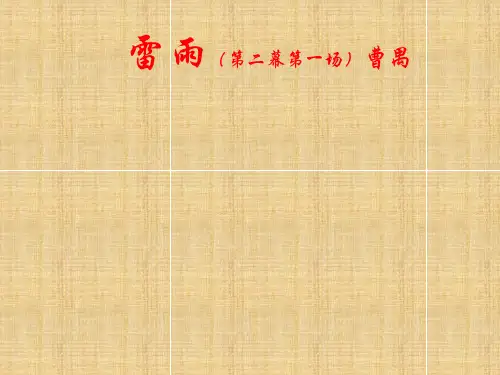 雷雨（第二幕第一场）曹禺